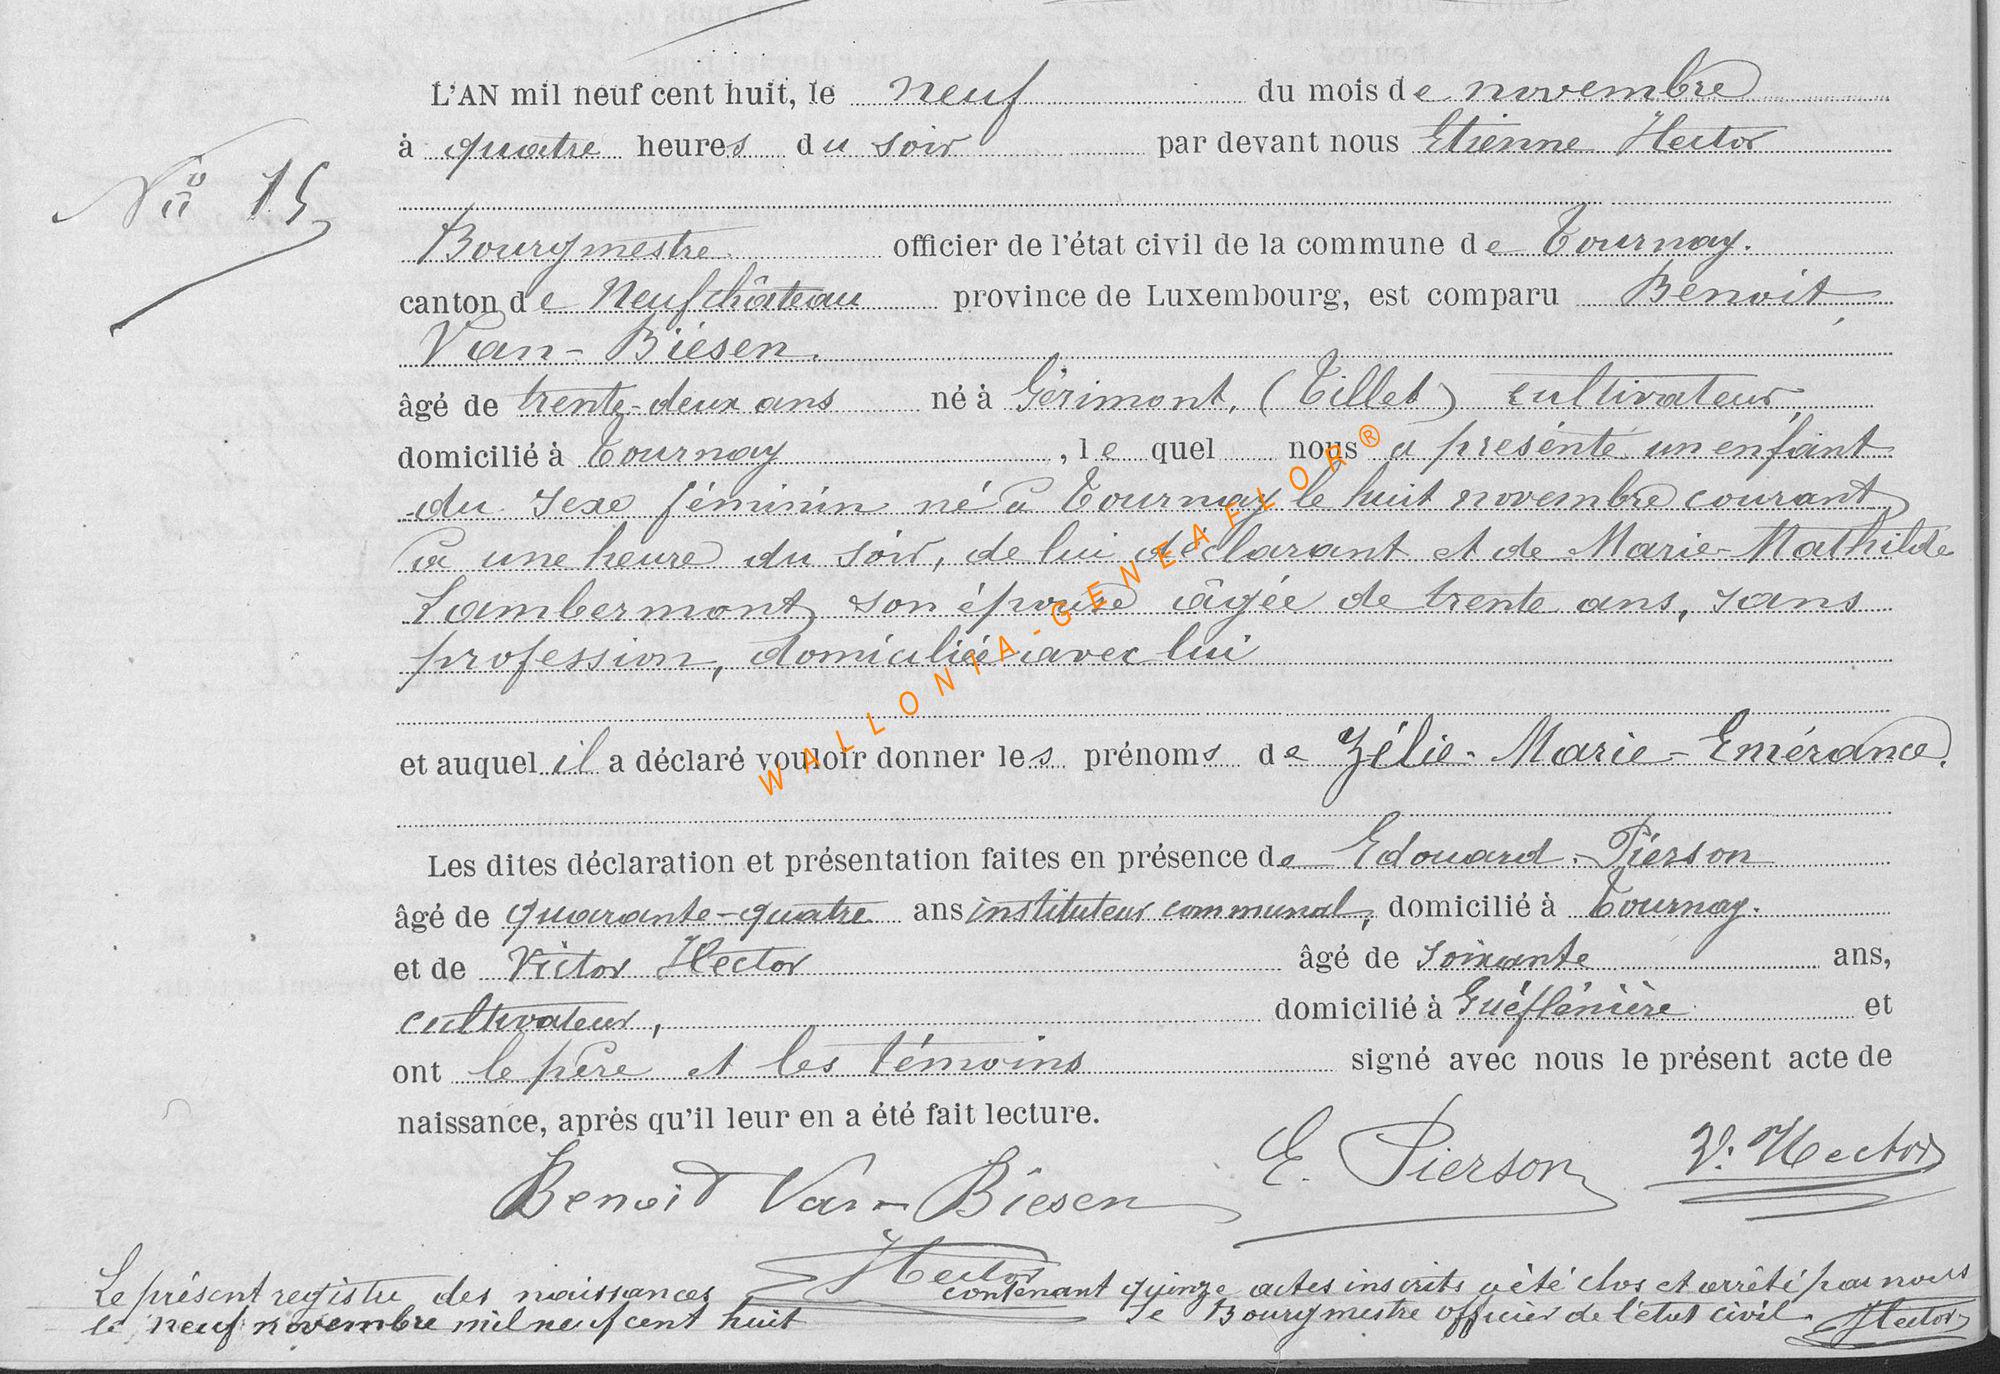 L'AN mil neuf cent huit, le neuf du mois de novembre
à quatre heures du soir par devant nous Etienne Hector
No 15
Bourgmestre officier de l'état civil de la commune de Tournay.
canton de Neufchâteau province de Luxembourg, est comparu Benoit
Van-Biesen.
âgé de trente-deux ans né à Gérimont, (Tillet) cultivateur,
domicilié à Tournay, le quel nous a présenté un enfant
du sexe féminin né à Tournay le huit novembre courant
à une heure du soir, de lui déclarant et de Marie-Mathilde
Lambermont son épouse âgée de trente ans, sans
profession, domiciliée avec lui
et auquel il a déclaré vouloir donner les prénoms de Zélie-Marie-Emérance.
Les dites déclaration et présentation faites en présence de Edouard Pierson
âgé de quarante-quatre ans instituteur communal, domicilié à Tournay.
et de Victor Hector âgé de soixante ans,
cultivateur, domicilié à Gueflénière et
ont le père et les témoins signé avec nous le présent acte de
naissance, après qu'il leur en a été fait lecture.
Benoit Van-Biesen E. Pierson V. Hector
Hector
Le présent registre des naissances contenant quinze actes inscrits a été clos et arrêté par nous
le neuf novembre mil neuf cent huit Le Bourgmestre officier de l'état civil. Hector
WALLONIA-GENEAFLOR®